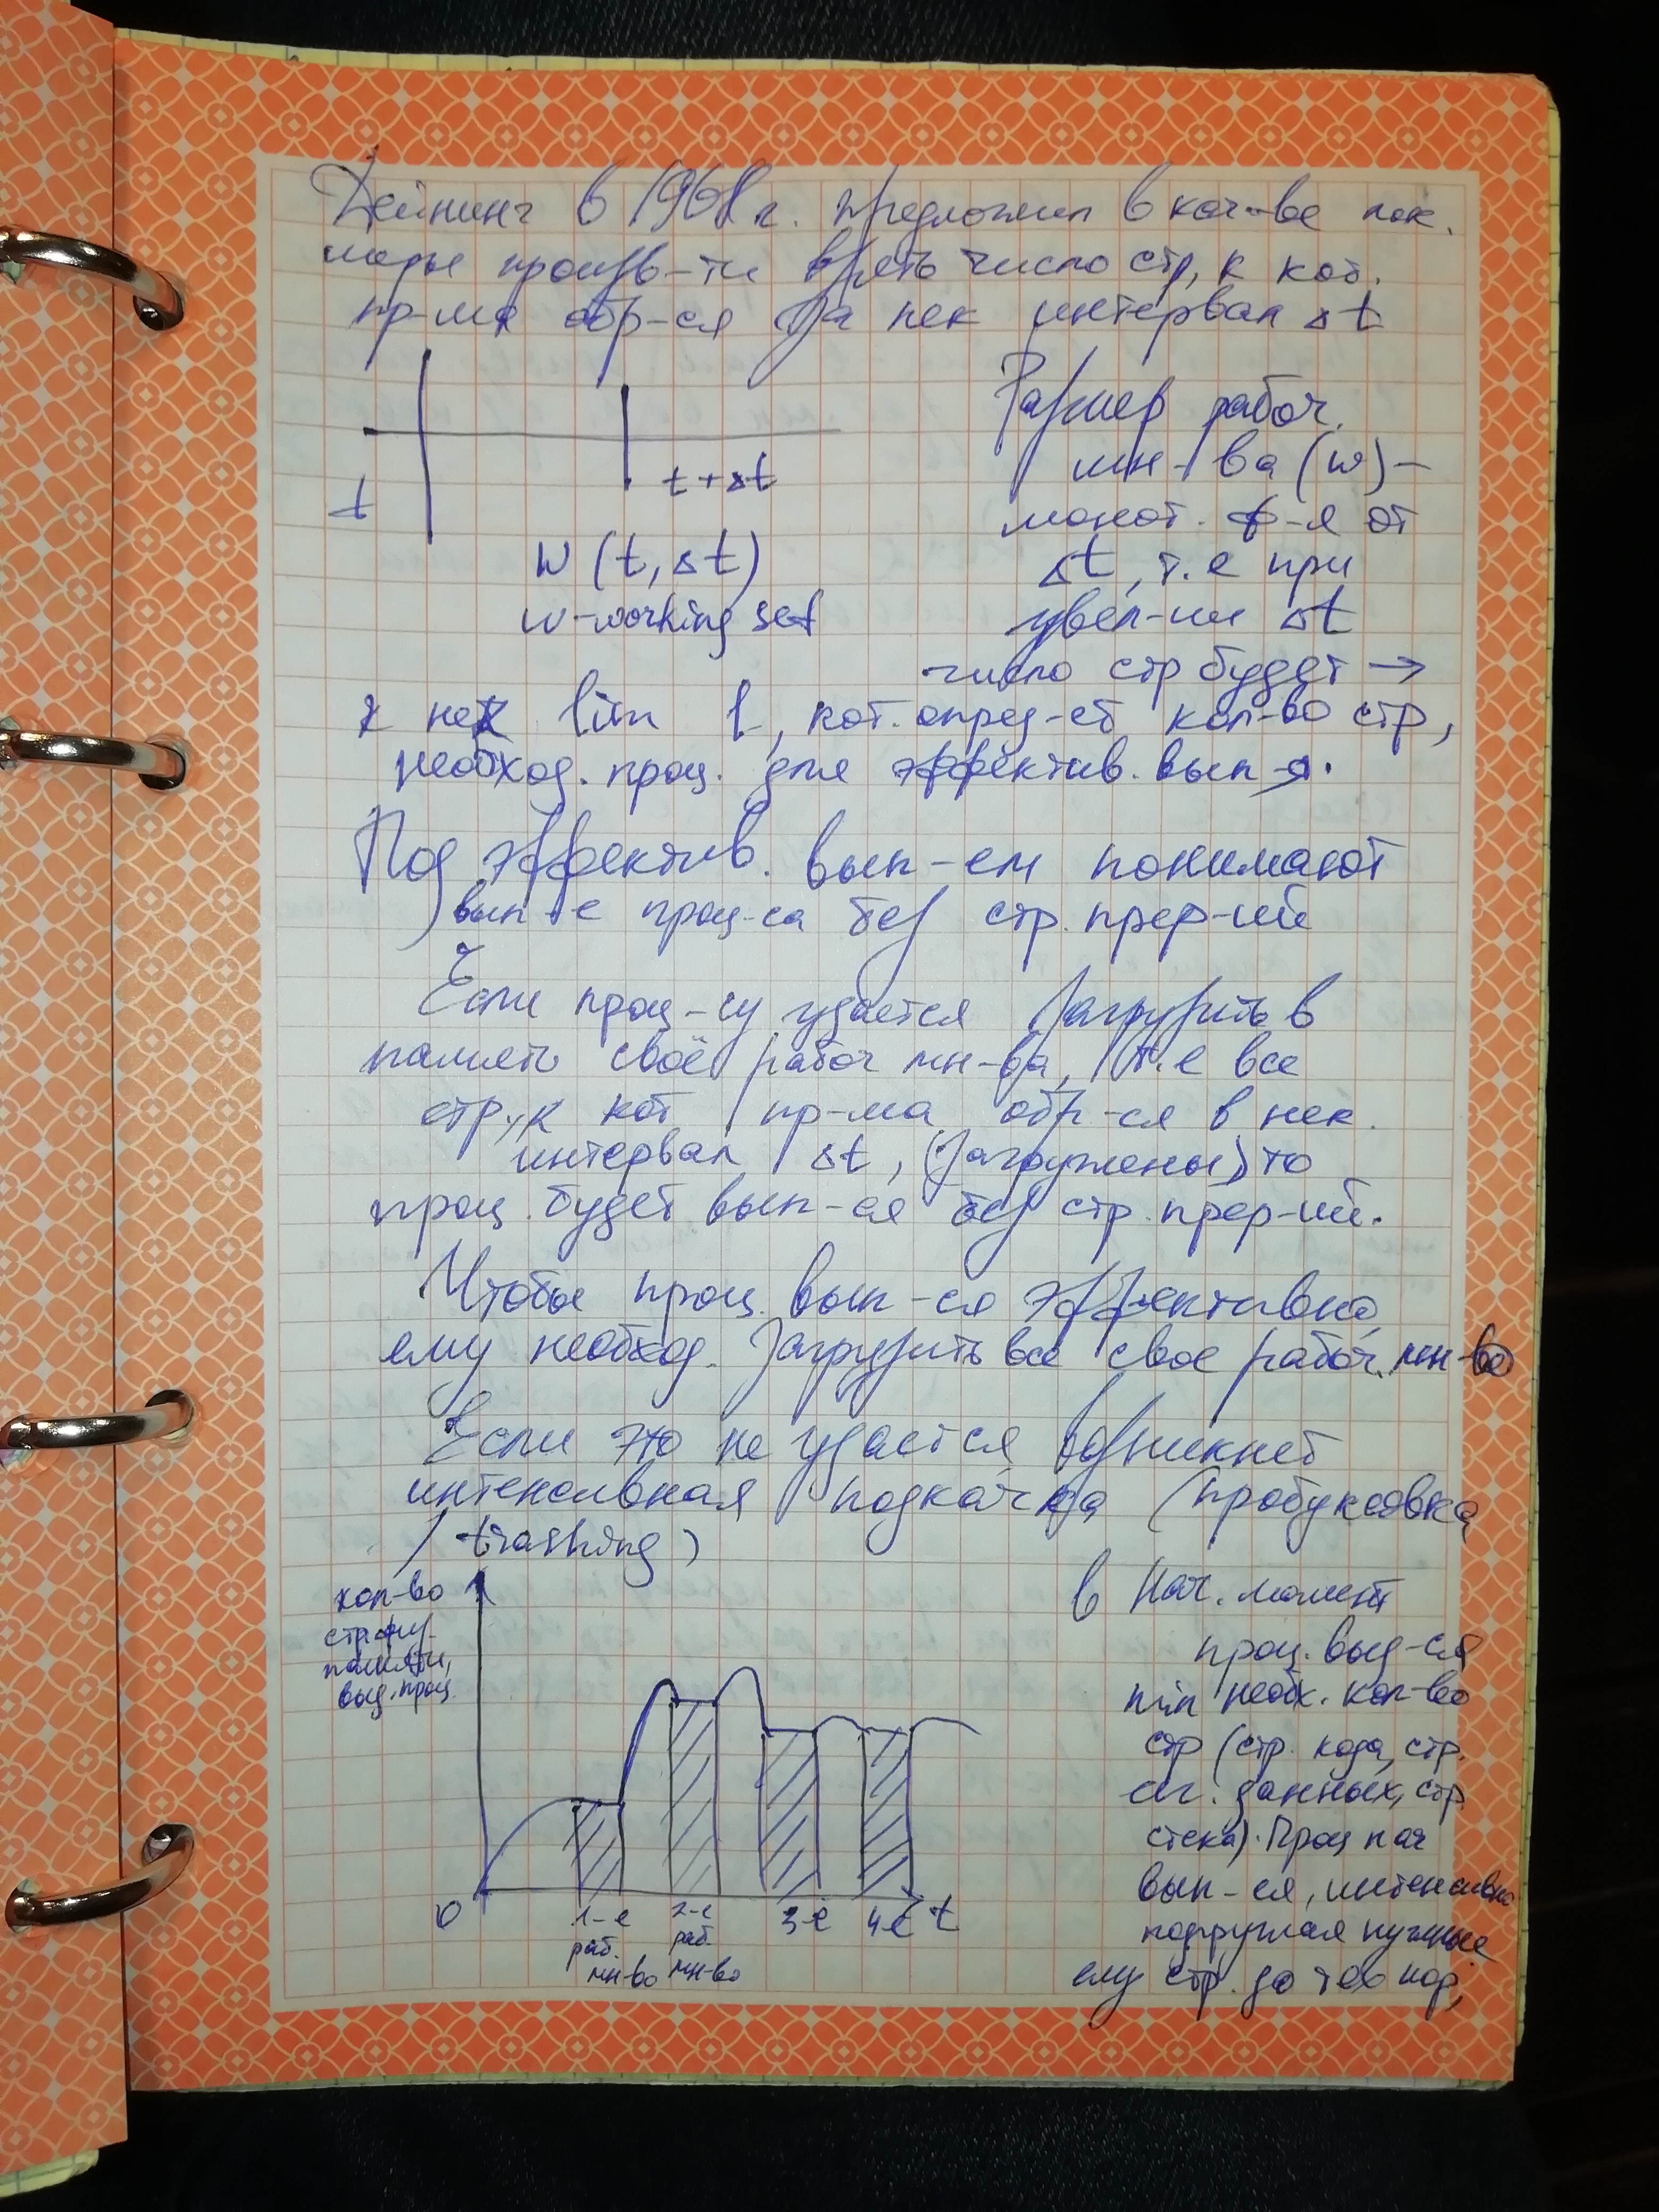 Деннинг в 1968 г. предложил в кач-ве лок.
меры произв-ти взять число стр, к кот.
пр-ма обр-ся за нек интервал Δt
t
t+Δt
W (t, Δt)
w-working set
Размер рабоч.
мн-ва (w) -
монот. ф-я от
Δt, т.е при
увел-ии Δt
число стр будет →
к нек lim l, кот. опред-ет кол-во стр,
необход. проц. для эффектив. вып-я.
Под эффектив. вып-ем понимают
вып-е проц-са без стр. прер-ий
Если проц-су удается загрузить в
память своё рабоч мн-ва, т.е все
стр, к кот пр-ма обр-ся в нек.
интервал Δt, (загружены) то
проц. будет вып-ся без стр. прер-ий.
Чтобы проц. вып-ся эффективно,
ему необход. загрузить все свое рабоч. мн-во
Если это не удается, возникнет
интенсивная подкачка (пробуксовка
/ trashing)
кол-во
стр физ.
памяти,
выд. проц.
0
1-е
раб.
мн-во
2-е
раб.
мн-во
3-е
4-е
t
в нач. момент
проц. выд-ся
min необх. кол-во
стр (стр. кода, стр.
сег. данных, стр
стека). Проц нач
вып-ся, интенсивно
подгружая нужные
ему стр. до тех пор,